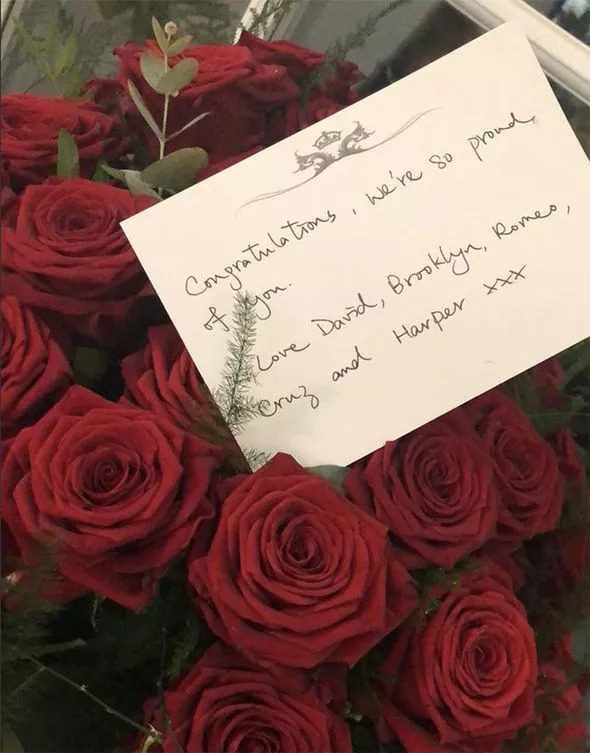 Congratulations, we're so proud
of you.
Love David, Brooklyn, Romeo,
Cruz and Harper xxx